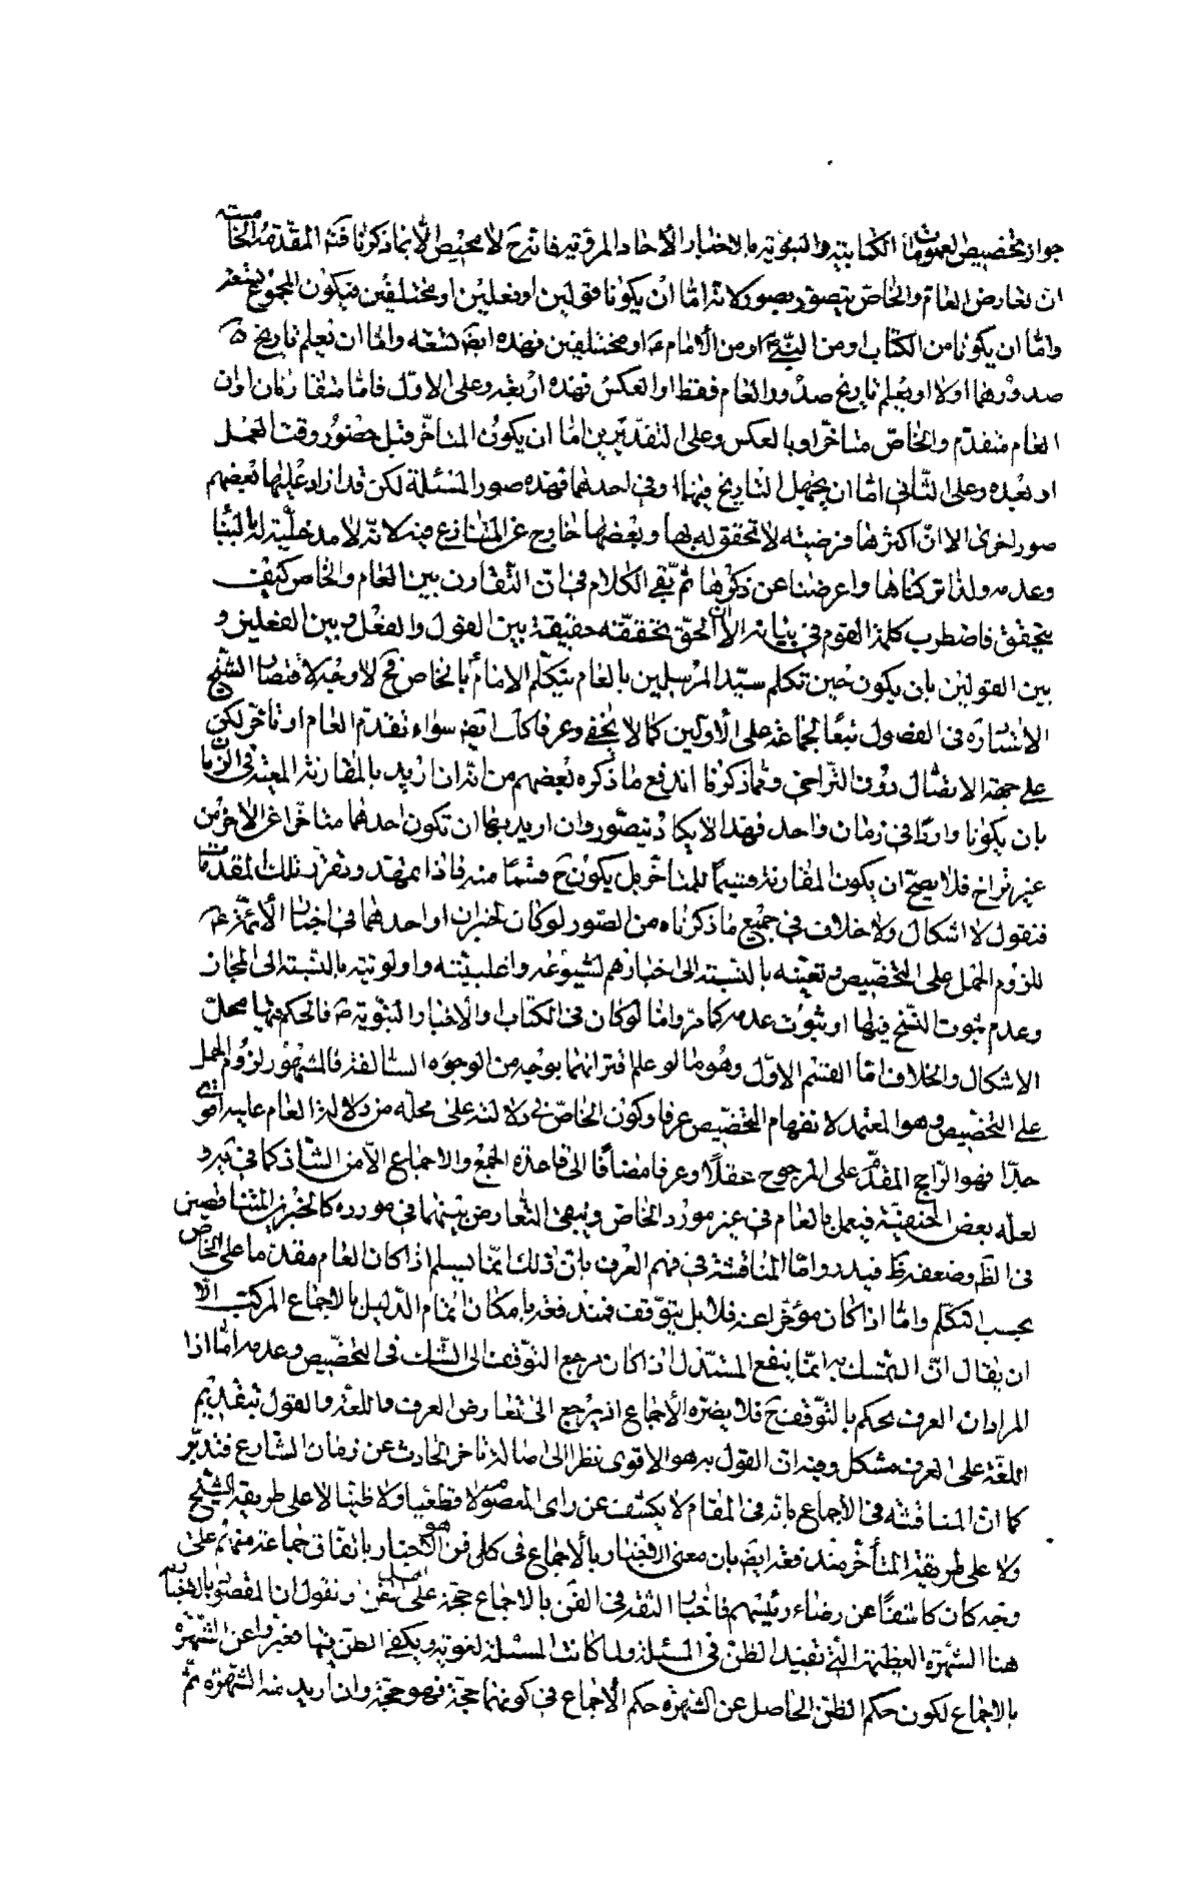 جواز تخصيص العمومات الكتابيّة والنبويّة بالاخبار الآحاد المرويّة فانّه ح لا محيص الّا بما ذكرنا فتمّ المقدّمة الخامسة
ان تعارض العام والخاصّ يتصوّر بصور لانّه امّا ان يكونا قولين او فعلين او مختلفين فيكون المجموع
وامّا ان يكونا من الكتاب او من النبيّ ص او من الامام ع او مختلفين فهذه ايضا تسعة وامّا ان يعلم تاريخ
صدورهما اولا او يعلم تاريخ صدور العام فقط او العكس فهذه اربعة وعلى الاوّل فامّا متّفقا زمان او ان
العام متقدّم والخاصّ متاخّر او بالعكس وعلى التقديرين امّا ان يكون المتاخّر قبل حضور وقت العمل
او بعده وعلى الثّاني امّا ان يجهل التاريخ فيهما او في احدهما فهذه صور المسئلة لكن قد ازاد عليها بعضهم
صور اخرى الا انّ اكثرها فرضيّة لا تحقق له بها وبعضها خارج عن المتنازع فيه لانّه لا مدخليّة له
وعدمه ولذا تركناها واعرضنا عن ذكرها ثم بقى الكلام في انّ التقارن بين العام والخاص كيف
يتحقق فاضطرب كلمة القوم في بيانه الّا انّ الحقّ تحققه حقيقة بين القول والفعل وبين الفعلين و
بين القولين بان يكون حين تكلم سيّد المرسلين بالعام يتكلّم الامام بالخاص فح لا وجه لاقتصار الشيخ
الاشارة في الفصول تبعًا لجماعة على الأولين كما لا يخفى وعرفا كك ايضا سواء تقدّم العام او تاخّر لكن
على جهة الاتصال دون التراخي وبما ذكرنا اندفع ما ذكره بعضهم من انّه ان اريد بالمقارنة المعيّة في الزّمان
بان يكونا واردا في زمان واحد فهذا لا يكاد يتصّور وان اريد بها ان تكون احدهما متاخّرا عن الاخر من
غير تراخ فلا يصحّ ان يكون المقارنة قسيمًا للمتاخّر بل يكون ح قسمًا منه فاذا تمهّد وتقرّر تلك المقدّمات
فنقول لا اشكال ولا خلاف في جميع ما ذكرناه من الصّور لو كان الخبران او احدهما في اخبار الأئمّة ع
للزوم الحمل على التخصيص وتعيّنه بالنسبة الى اخبارهم لشيوعه واغلبيّته واولويّته بالنّسبة الى المجاز
وعدم ثبوت النسخ فيها او ثبوت عدمه كما مرّ وامّا لو كان في الكتاب والاخبار النّبويّة ص فالحكم فيها محلّ
الاشكال والخلاف امّا القسم الاوّل وهو ما لو علم اقترانهما بوجه من الوجوه السّالفة فالمشهور لزوم الحمل
على التخصيص وهو المعتمد لانفهام التخصيص عرفا وكون الخاصّ في دلالته على محلّه من دلالة العام عليه اقوى
جدّا فهو الرّاجح المقدّم على المرجوح عقلًا وعرفا مضافًا الى قاعدة الجمع والاجماع الّا من الشاذ كما في
لعلّه بعض الحنفيّة فيعمل بالعام في غير مورد الخاص ويبقى التّعارض بينهما في مورده كالخبرين المتناقضين
في الظّ وضعفه ظ فيه وامّا المناقشة في فهم العرف بانّ ذلك انّما يسلم اذا كان العام مقدّما على الخاص
بحسب التكلّم وامّا اذا كان مؤخّرا عنه فلا بل يتوّقف فمندفعة بامكان اتمام الدّليل بالاجماع المركب الّا
ان يقال انّ التمسك به انّما ينفع المستدلّ اذا كان مرجع التوّقف الى الشّك في التخصيص وعدمه امّا اذا
المراد ان العرف يحكم بالتوّقف ح فلا يضرّه الأجماع اذ يرجع الى تعارض العرف واللغة والقول بتقديم
اللغة على العرف مشكل وفيه انّ القول به هو الاقوى نظرا الى اصالة تاخر الحادث عن زمان الشارع فتدبّر
كما انّ المناقشة في الأجماع بانّه في المقام لا يكشف عن راى المعصوم لا قطعيا ولا ظنيّا لا على طريقة الشّيخ
ولا على طريقة المتأخّر مندفعة ايضا بان معنى بالأجماع في كل فن هو باتّفاق جماعة منهم على
وجه كان كاشفًا عن رضاء رئيسهم فاخبار الثقة في الفن بالاجماع حجّة على ونقول ان المقصود بالاخبار
هنا الشّهرة العظيمة الّتي تفيد الظنّ في المسئلة ولما كانت المسئلة لغويّة ويكفى الظنّ فيها فعبّروا عن الشّهرة
بالاجماع لكون حكم الظنّ الحاصل عن الشهرة حكم الأجماع في كونهما حجّة فهو حجّة وان اريد منه الشّهرة ثمّ